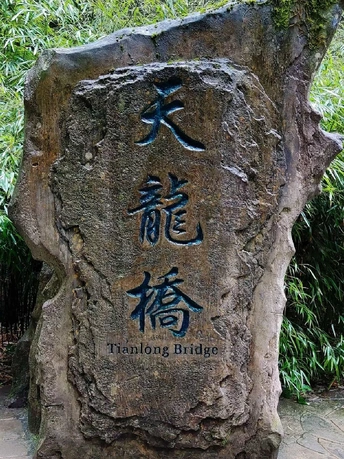 天龍橋
Tianlong Bridge